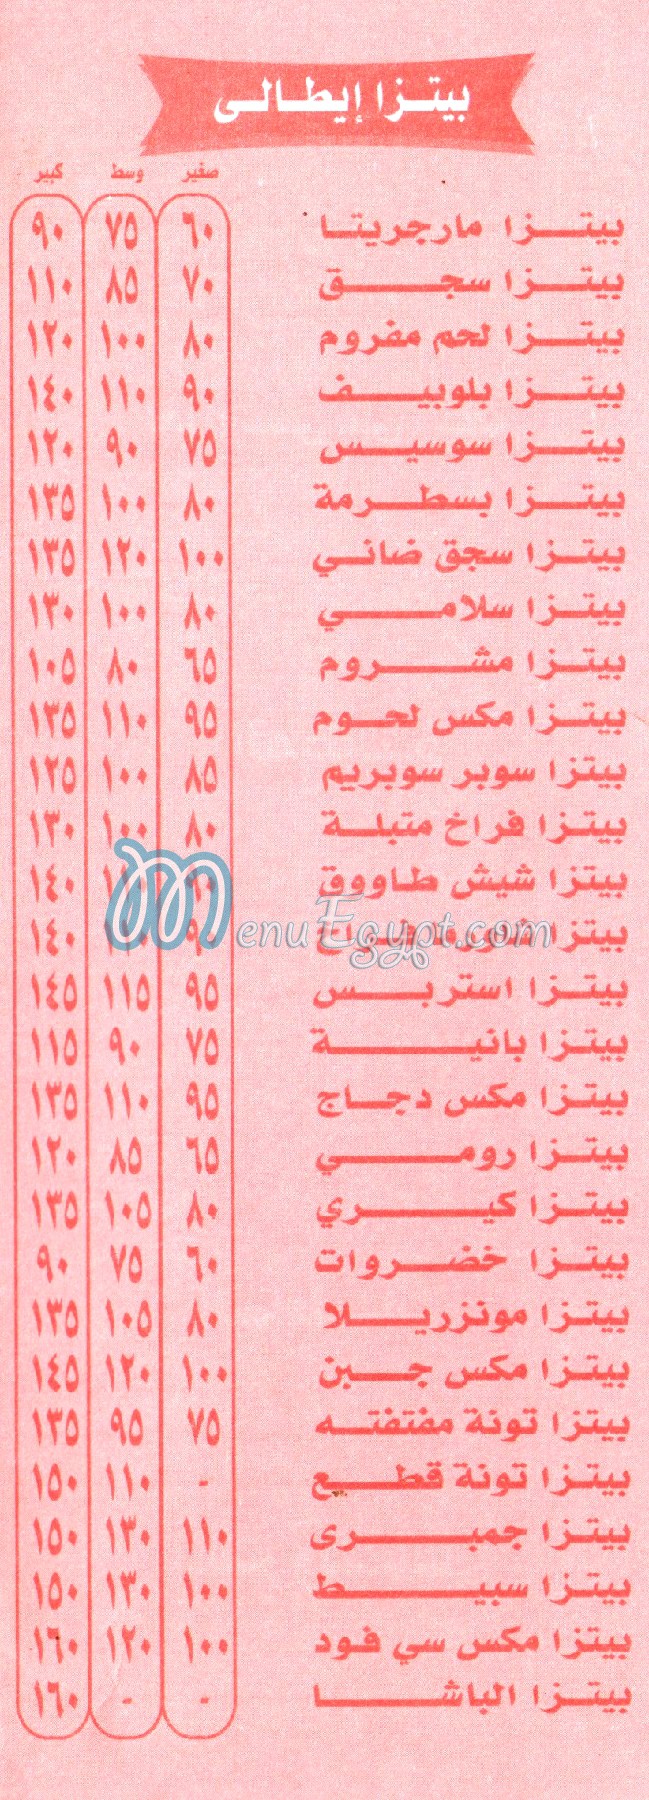 بيتزا إيطالى
صغير وسط كبير
بيتزا مارجريتا ٦٠ ٧٥ ٩٠
بيتزا سجق ٧٠ ٨٥ ١١٠
بيتزا لحم مفروم ٨٠ ١٠٠ ١٢٠
بيتزا بلوبيف ٩٠ ١١٠ ١٤٠
بيتزا سوسيس ٧٥ ٩٠ ١٢٠
بيتزا بسطرمة ٨٠ ١٠٠ ١٣٥
بيتزا سجق ضاني ١٠٠ ١٢٠ ١٣٥
بيتزا سلامي ٨٠ ١٠٠ ١٣٠
بيتزا مشروم ٦٥ ٨٠ ١٠٥
بيتزا مكس لحوم ٩٥ ١١٠ ١٣٥
بيتزا سوبر سوبريم ٨٥ ١٠٠ ١٢٥
بيتزا فراخ متبلة ٨٠ ١٠٠ ١٣٠
بيتزا شيش طاووق ٩٠ ١١٠ ١٤٠
بيتزا شاورما فراخ ٩٠ ١٤٠
MenuEgypt.com
بيتزا استربس ٩٥ ١١٥ ١٤٥
بيتزا بانية ٧٥ ٩٠ ١١٥
بيتزا مكس دجاج ٩٥ ١١٠ ١٣٥
بيتزا رومي ٦٥ ٨٥ ١٢٠
بيتزا كيري ٨٠ ١٠٥ ١٣٥
بيتزا خضروات ٦٠ ٧٥ ٩٠
بيتزا مونزريلا ٨٠ ١٠٥ ١٣٥
بيتزا مكس جبن ١٠٠ ١٢٠ ١٤٥
بيتزا تونة مفتفته ٧٥ ٩٥ ١٣٥
بيتزا تونة قطع - ١١٠ ١٥٠
بيتزا جمبرى ١١٠ ١٣٠ ١٥٠
بيتزا سبيط ١٠٠ ١٣٠ ١٥٠
بيتزا مكس سي فود ١٠٠ ١٢٠ ١٦٠
بيتزا الباشا - - ١٦٠